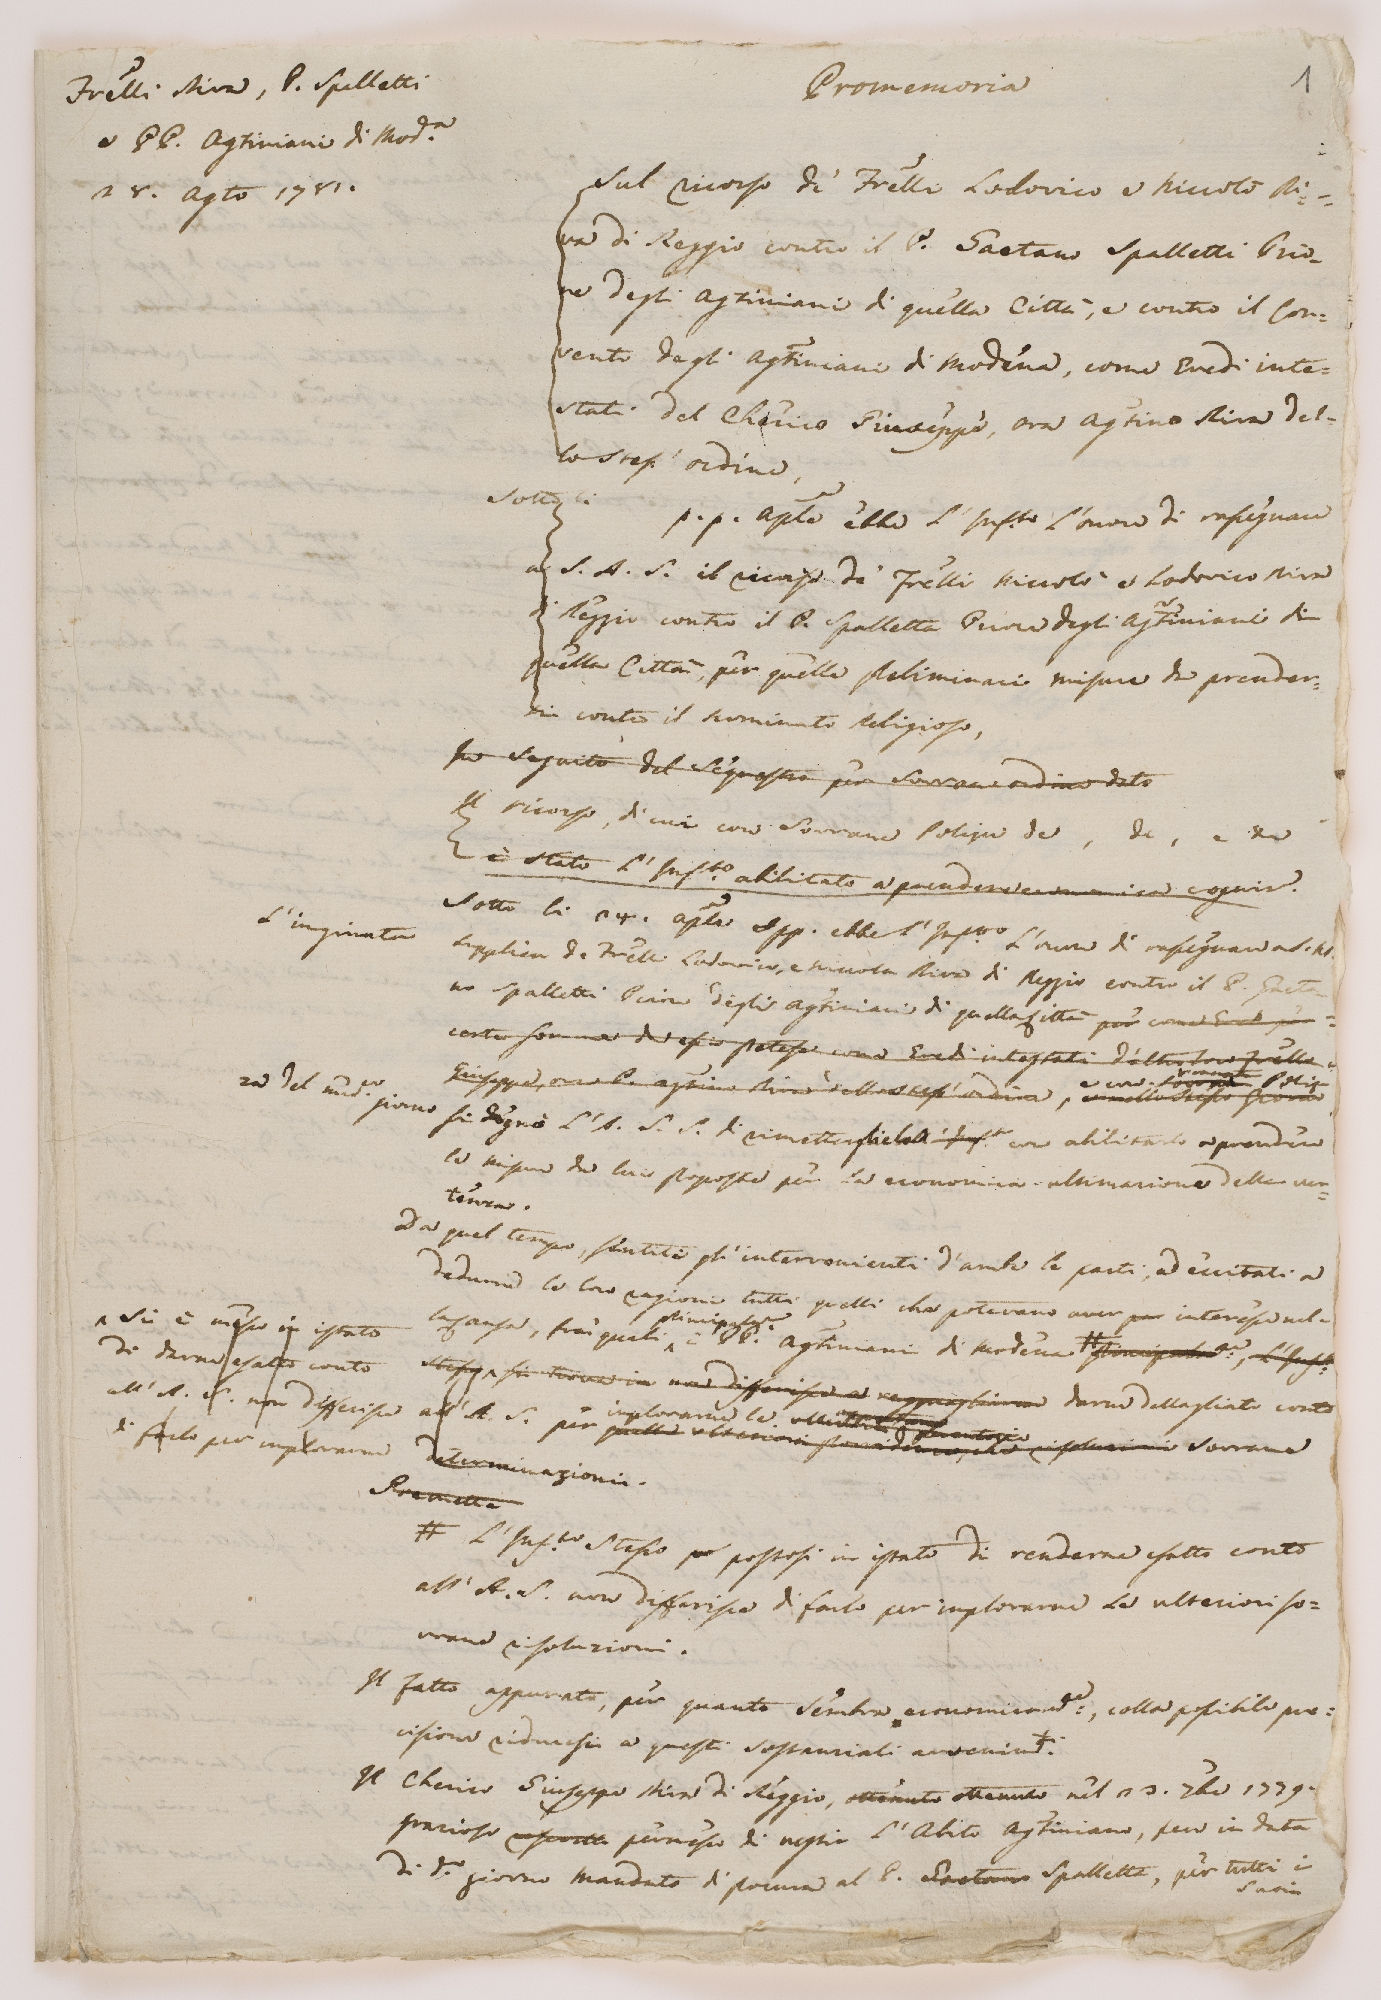 Frelli Riva, P. Spalletti
e PP. Agtiniani di Mod.a
28. Agto 1781.
Promemoria
1
Sul ricorso de' Frelli Lodovico e Niccolò Ri=
va di Reggio contro il P. Gaetano Spalletti Prio=
re degli Agtiniani di quella Città, e contro il Con=
vento degli Agtiniani di Modena, come Eredi inte=
stati del Cherico Giuseppe, ora Agtino Riva del=
lo stess' ordine,
Sotto li p.p. Aple ebbe l'Inf.tto l'onore di rassegnare
a S. A. S. il ricorso de' Frelli Niccolò e Lodovico Riva
di Reggio contro il P. Spalletta Priore degli Agtiniani di
quella Città, per quelle preliminari misure da prender=
si contro il nominato Religioso,
In seguito del sequestro per Sovrano ordine dato
Il ricorso, di cui con Sovrane Polizze de , de , e de
è stato l'Inf.tto abilitato a prendere economica cogniz.e
Sotto li 24. Aple spp. ebbe l'Inf.tto l'onore di rassegnare a S. A. S.
L'ingiunta
supplica de Frelli Lodovico, e Niccola Riva di Reggio contro il P. Gaeta=
no Spalletti Priore degli Agtiniani di quella Città per come Eredi
certa somma da esso pretesa come Eredi intestati d'altro loro fratello
Giuseppe, ora P. Agtino Riva dello stess' ordine, e con Sovrana Poliz=
za del med.o giorno
si degnò l'A. S. S. di rimettergliela con abilitarlo a prendere
le misure da lui proposte per la economica ultimazione della ver=
tenza.
Da quel tempo, sentiti gl'intervenienti d'ambe le parti, ed eccitati a
dedurre le loro ragioni tutti quelli che potevano aver per interesse nel=
la causa, fra' quali principalm.e i PP. Agtiniani di Modena # principalm.e, l'Inf.tto
Si è messo in istato
di darne esatto conto
all'A. S. non differisce
di farlo per implorarne
stesso, si trova in non differisce a ragguagliarne darne dettagliato conto
all'A. S. per implorarne le quelle ulteriori provvidenze, che risoluzioni Sovrane
determinazioni.
Premette
# L'Inf.tto stesso postosi in istato di renderne esatto conto
all'A. S. non differisce di farlo per implorarne le ulteriori so=
vrane risoluzioni.
Il fatto appurato, per quanto sembra economicam.e, colla possibile pre=
cisione riducesi a questi sostanziali avvenim.ti
Il Cherico Giuseppe Riva di Reggio, ottenuto ottenuto nel 23. 7bre 1779.
grazioso permesso di vestir l'Abito Agtiniano, fece in data
di d.o giorno Mandato di procura al P. Gaetano Spalletta, per tutti i
suoi